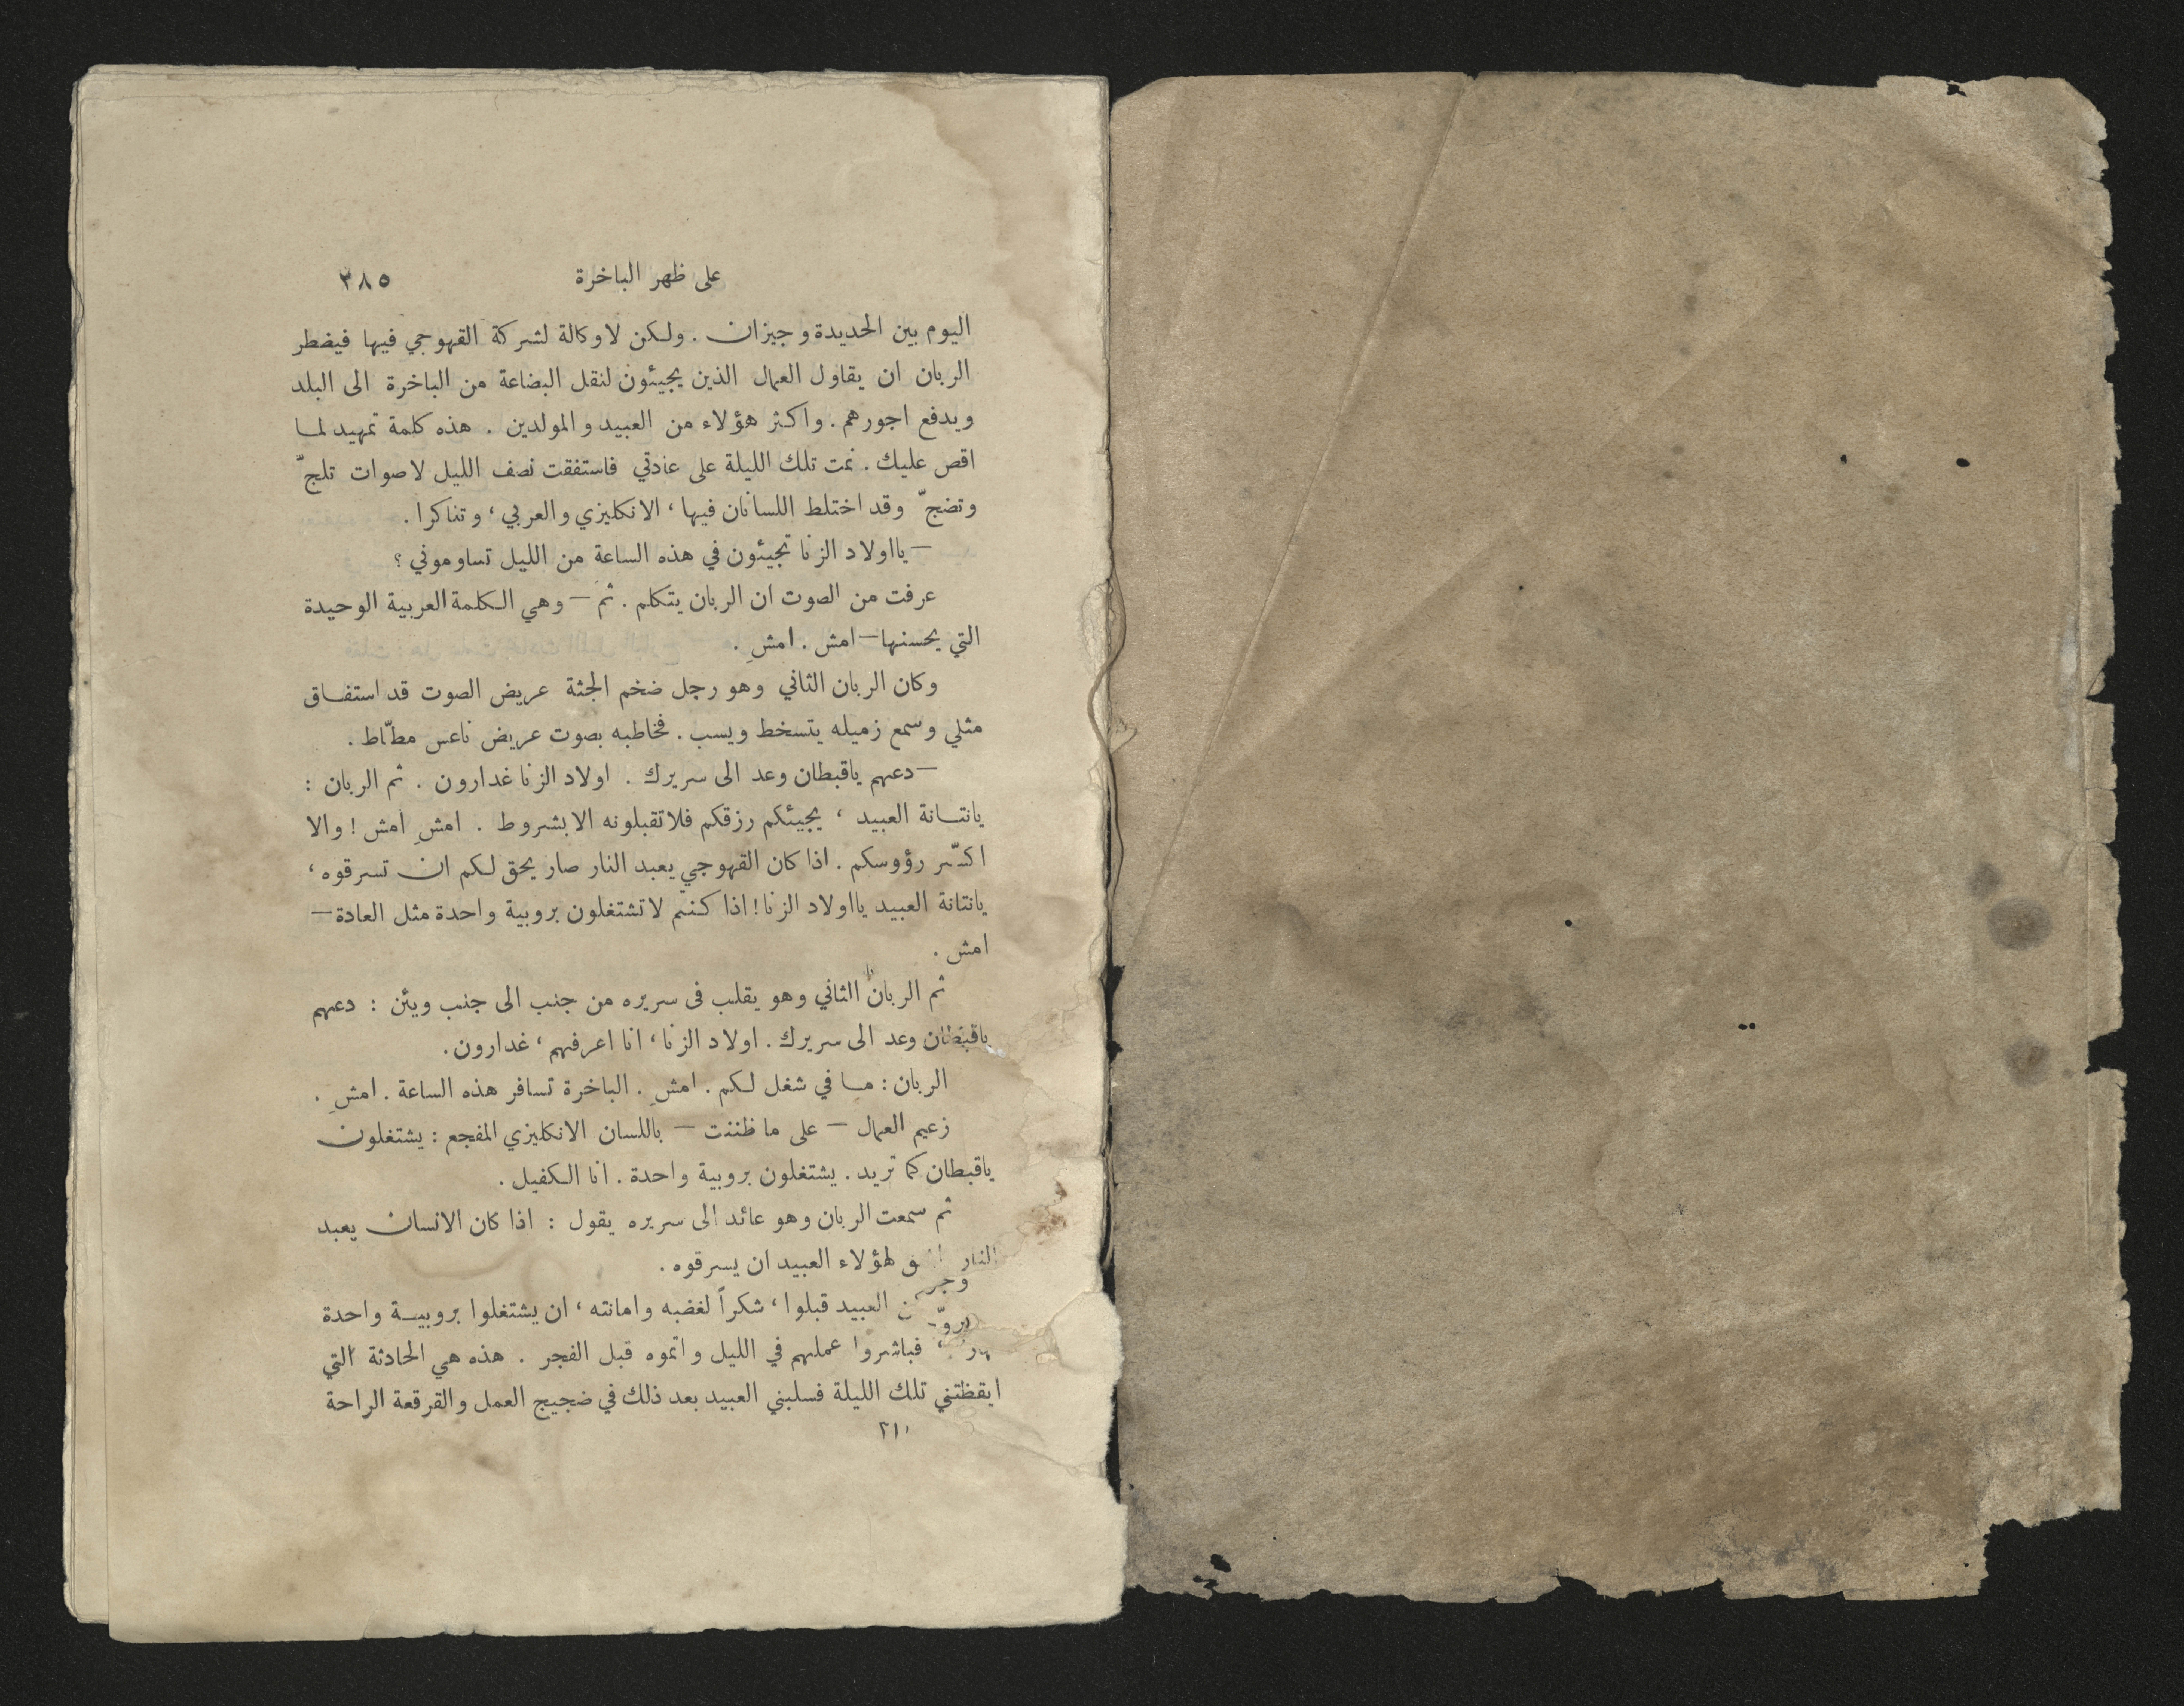 على ظهر الباخرة ٢٨٥
اليوم بين الحديدة وجيزان . ولكن لا وكالة لشركة القهوجي فيها فيضطر
الربان ان يقاول العمال الذين يجيئون لنقل البضاعة من الباخرة الى البلد
ويدفع اجورهم . واكثر هؤلاء من العبيد والمولدين . هذه كلمة تمهيد لما
اقص عليك . نمت تلك الليلة على عادتي فاستفقت نصف الليل لاصوات تلجّ
وتضجّ وقد اختلط اللسانان فيها ، الانكليزي والعربي ، وتناكرا .
— يا اولاد الزنا تجيئون في هذه الساعة من الليل تساوموني ؟
عرفت من الصوت ان الربان يتكلم . ثم — وهي الكلمة العربية الوحيدة
التي يحسنها — امش . امشِ .
وكان الربان الثاني وهو رجل ضخم الجثة عريض الصوت قد استفاق
مثلي وسمع زميله يتسخط ويسب . فخاطبه بصوت عريض ناعس مطّاط .
— دعهم ياقبطان وعد الى سريرك . اولاد الزنا غدارون . ثم الربان :
يانتانة العبيد ، يجيئكم رزقكم فلا تقبلونه الا بشروط . امشِ امش ! والا
اكسّر رؤوسكم . اذا كان القهوجي يعبد النار صار يحق لكم ان تسرقوه ،
يانتانة العبيد يااولاد الزنا ! اذا كنتم لا تشتغلون بروبية واحدة مثل العادة —
امش .
ثم الربان الثاني وهو يقلب في سريره من جنب الى جنب ويئن : دعهم
ياقبطان وعد الى سريرك . اولاد الزنا ، انا اعرفهم ، غدارون .
الربان : ما في شغل لكم . امشِ . الباخرة تسافر هذه الساعة . امشِ .
زعيم العمال — على ما ظننت — باللسان الانكليزي المفجع : يشتغلون
ياقبطان كما تريد . يشتغلون بروبية واحدة . انا الكفيل .
ثم سمعت الربان وهو عائد الى سريره يقول : اذا كان الانسان يعبد
النار لهؤلاء العبيد ان يسرقوه .
العبيد قبلوا ، شكراً لغضبه وامانته ، ان يشتغلوا بروبية واحدة
فباشروا عملهم في الليل واتموه قبل الفجر . هذه هي الحادثة التي
ايقظتني تلك الليلة فسلبني العبيد بعد ذلك في ضجيج العمل والقرقعة الراحة